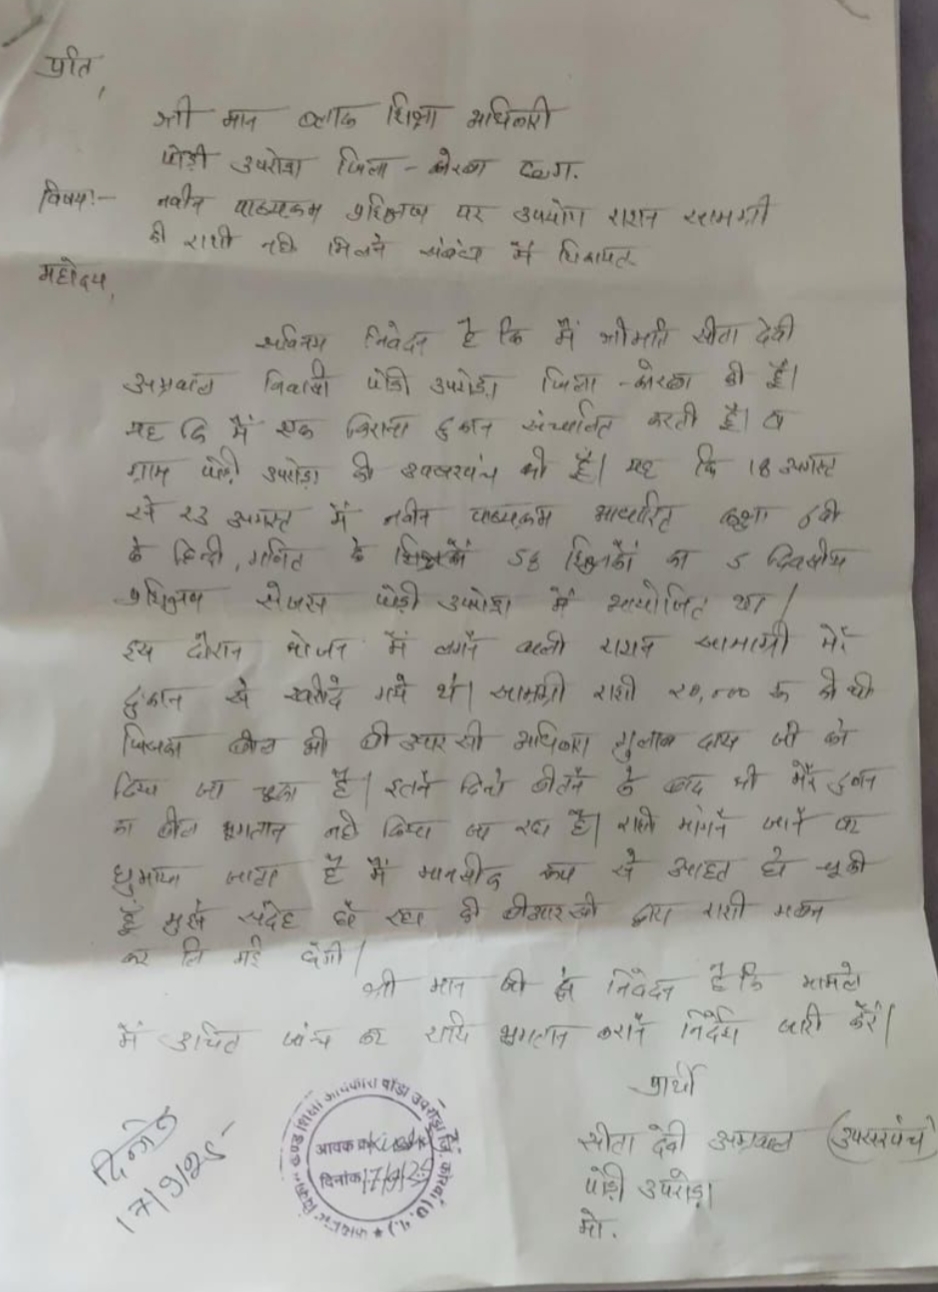 प्रति,
श्री मान ब्लाक शिक्षा अधिकारी
पोड़ी उपरोड़ा जिला - कोरबा छ.ग.
विषय:- नवीन पाठ्यक्रम प्रशिक्षण पर उपयोग राशन सामग्री
की राशी नही मिलने संबंध में शिकायत
महोदय,
सविनय निवेदन है कि मैं श्रीमति सीता देवी
अग्रवाल निवासी पोड़ी उपरोड़ा जिला - कोरबा की हैं।
यह कि मैं एक किराना दुकान संचालित करती हैं। व
ग्राम पोड़ी उपरोड़ा की उपसरपंच भी हैं। यह कि 18 अगस्त
से 23 अगस्त में नवीन पाठ्यक्रम आधारित कक्षा 6वी
के हिन्दी, गणित के शिक्षकों 58 शिक्षकों का 5 दिवसीय
प्रशिक्षण सेजस पोड़ी उपरोड़ा में आयोजित था।
इस दौरान भोजन में लगने वाली राशन सामाग्री मेरे
दुकान से खरीदे गये थे। सामग्री राशी २०,००० रू की थी
जिसका बील भी बीआरसी अधिकारी गुलाब दास जी को
दिया जा चूका है। इतने दिनो बीतने के बाद भी मेरे दुकान
का बील भुगतान नही किया जा रहा है। राशी मांगने जाने पर
घुमाया जाता है मैं मानसीक रूप से आहत हो चूकी
हूँ मुझे संदेह हो रहा की बीआरसी द्वारा राशी गबन
कर लि गई होगी।
श्री मान जी से निवेदन है कि मामले
में उचित जांच कर राशि भुगतान कराने निर्देश जारी करें।
प्रार्थी
सीता देवी अग्रवाल (उपसरपंच)
पोड़ी उपरोड़ा
मो.
17/9/25
खण्ड शिक्षा अधिकारी पोंडी उपरोड़ा जि. कोरबा
आवक क्र.
दिनांक 17/9/25